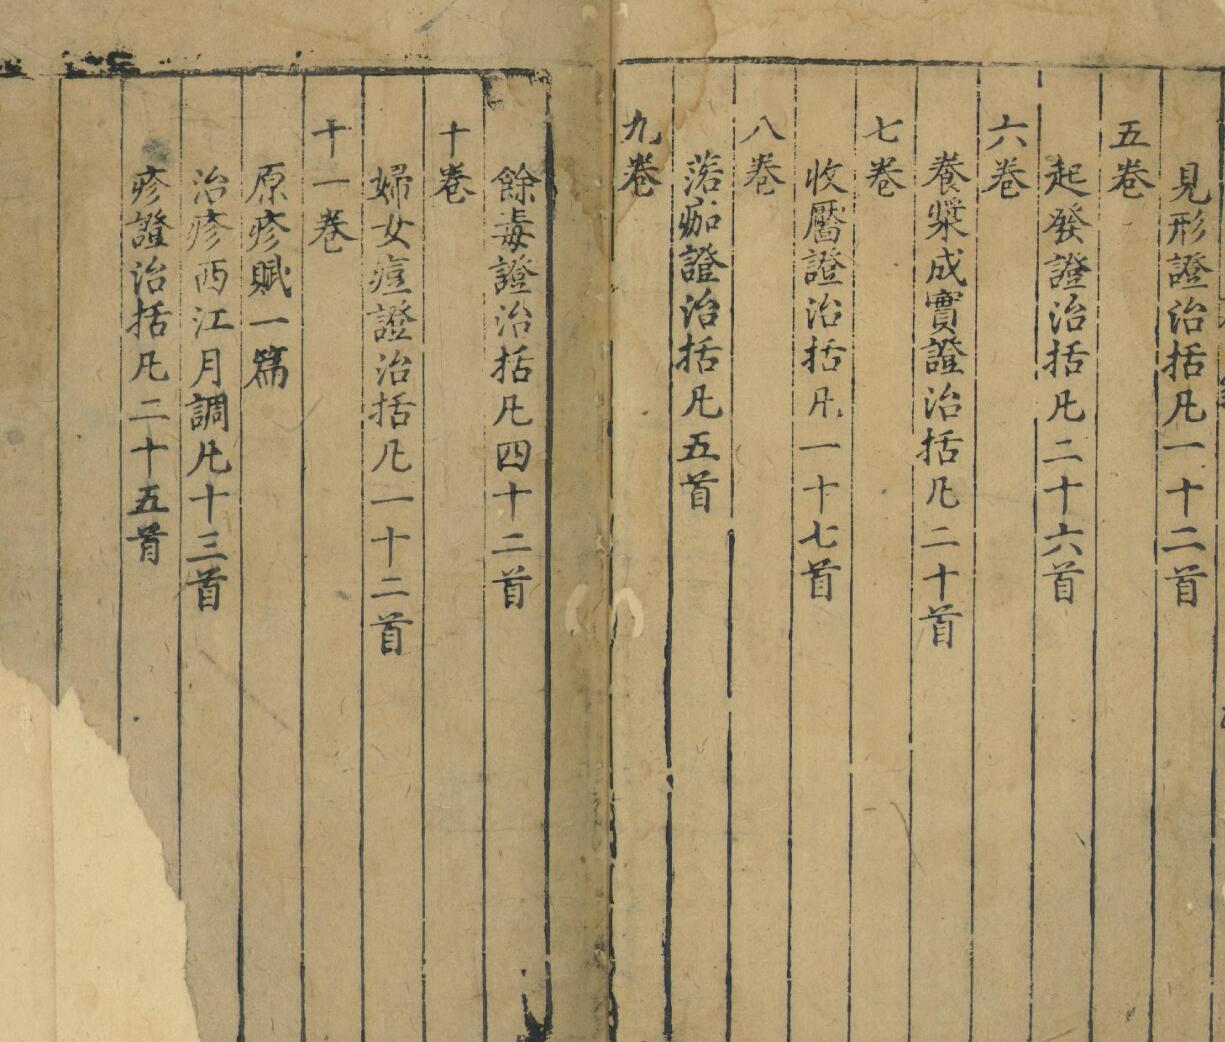 見形證治括凡一十二首
五卷
起發證治括凡二十六首
六卷
養漿成實證治括凡二十首
七卷
收靨證治括凡一十七首
八卷
落痂證治括凡五首
九卷
餘毒證治括凡四十二首
十卷
婦女痘證治括凡一十二首
十一卷
原疹賦一篇
治疹西江月調凡十三首
疹證治括凡二十五首